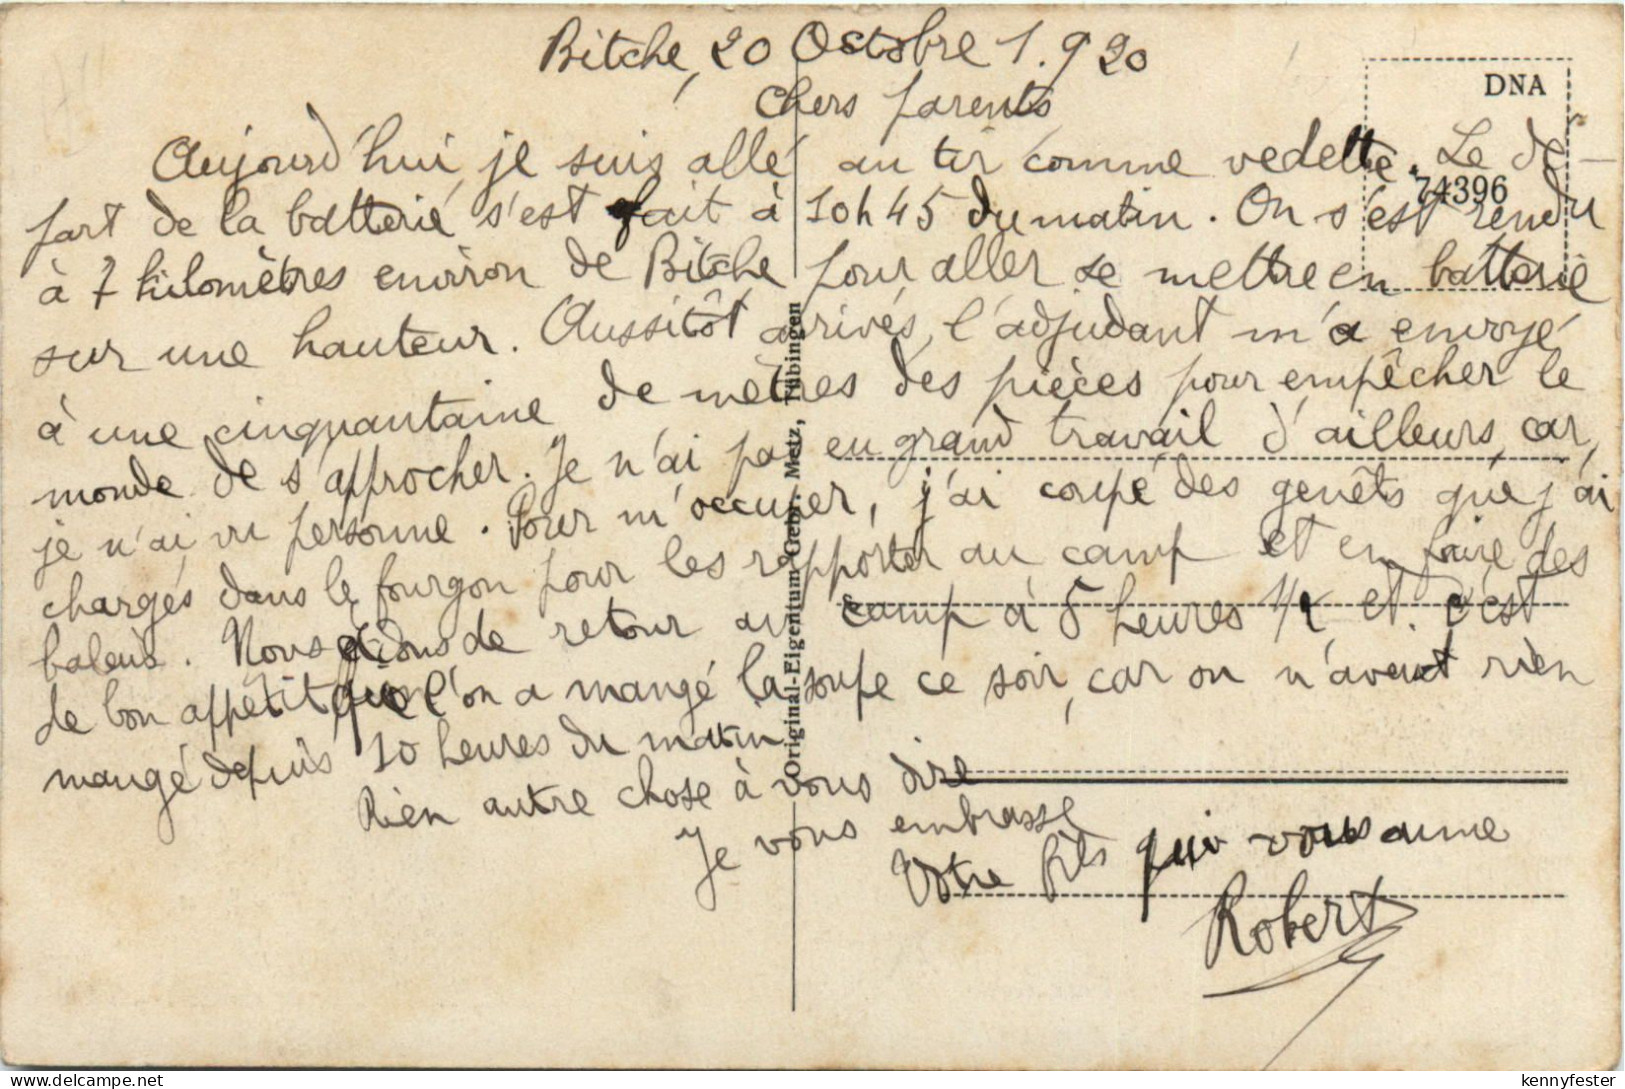 Bitche, 20 Octobre 1.920
DNA
Chers parents
Aujourd'hui, je suis allé au tir comme vedette. Le dé-
74396
part de la batterie s'est fait à 10h45 du matin. On s'est rendu
à 7 kilomètres environ de Bitche pour aller se mettre en batterie
sur une hauteur. Aussitôt arrivés, l'adjudant m'a envoyé
à une cinquantaine de mètres des pièces pour empêcher le
monde de s'approcher. Je n'ai pas eu grand travail d'ailleurs, car,
je n'ai vu personne. Pour m'occuper, j'ai coupé des genêts que j'ai
chargés dans le fourgon pour les rapporter au camp et en faire des
balais. Nous étions de retour au camp à 5 heures 1/2 et c'est
de bon appétit que l'on a mangé la soupe ce soir, car on n'avait rien
mangé depuis 10 heures du matin.
Rien autre chose à vous dire
Je vous embrasse
Votre fils qui vous aime
Robert
Original-Eigentum Gebr. Metz, Tübingen
kennyfester